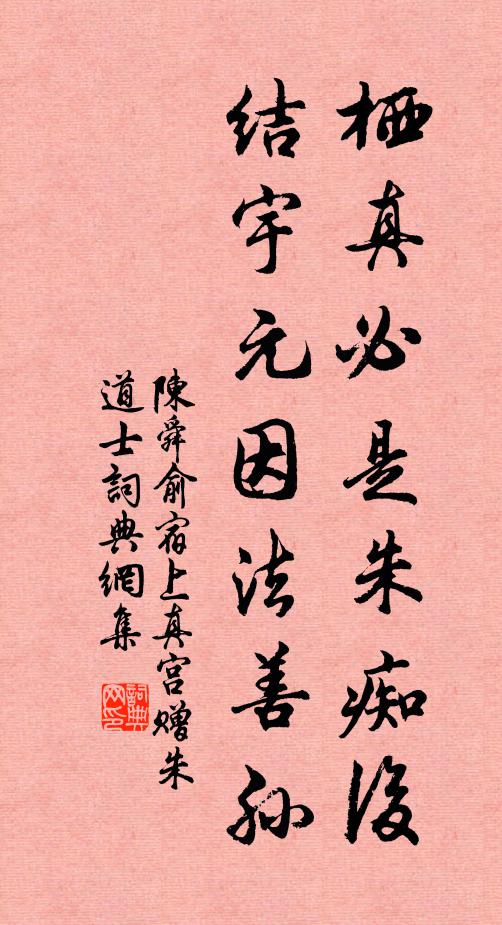 栖真必是朱痴後
结宇元因法善孙
陳舜俞宿上真宫赠朱
道士詞典網集
詞典
网印